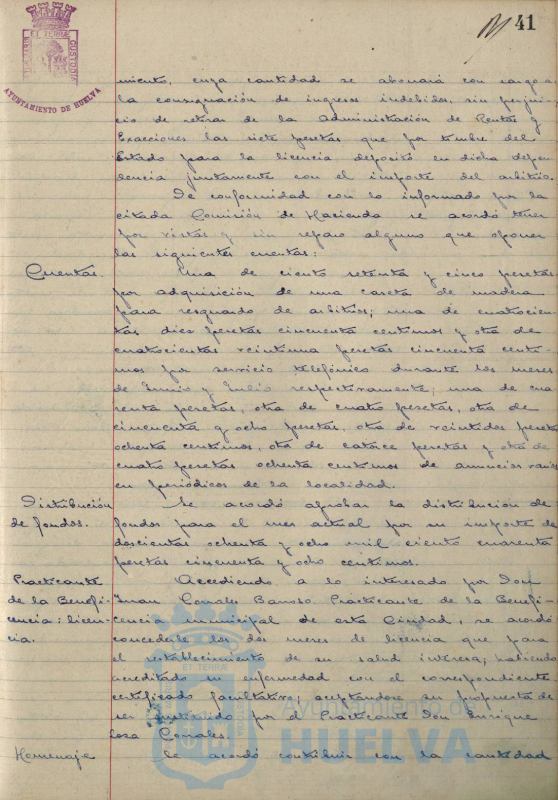 41
AYUNTAMIENTO DE HUELVA
miento, cuya cantidad se abonará con cargo a
la consignación de ingresos indebidos, sin perjui-
cio de retirar de la Administración de Rentas y
Exacciones las siete pesetas que por timbre del
Estado para la licencia depositó en dicha depen-
dencia juntamente con el importe del arbitrio.
De conformidad con lo informado por la
citada Comisión de Hacienda se acordó tener
por vistas y sin reparo alguno que oponer
las siguientes cuentas:
Cuentas. Una de ciento setenta y cinco pesetas
por adquisición de una caseta de madera
para resguardo de arbitrios; una de cuatrocien-
tas diez pesetas cincuenta centimos y otra de
cuatrocientas veintiuna pesetas cincuenta centi-
mos por servicio telefónico durante los meses
de Junio y Julio respectivamente; una de cua-
renta pesetas, otra de cuatro pesetas, otra de
cincuenta y ocho pesetas, otra de veintidos pesetas
ochenta centimos, otra de catorce pesetas y otra de
cuatro pesetas ochenta centimos de anuncios varios
en periódicos de la localidad.
Distribución de fondos. Se acordó aprobar la distribución de
fondos para el mes actual por su importe de
doscientas ochenta y ocho mil ciento cuarenta
pesetas cincuenta y ocho centimos.
Practicante de la Benefi-cencia: licen-cia. Accediendo a lo interesado por Don
Juan Corrales Barroso Practicante de la Benefi-
cencia municipal de esta Ciudad, se acordó
concederle los dos meses de licencia que para
el restablecimiento de su salud interesa, habiendo
acreditado su enfermedad con el correspondiente
certificado facultativo; aceptandose su propuesta de
ser sustituido por el Practicante Don Enrique
Corrales.
Homenaje Se acordó contribuir con la cantidad
Ayuntamiento de
HUELVA